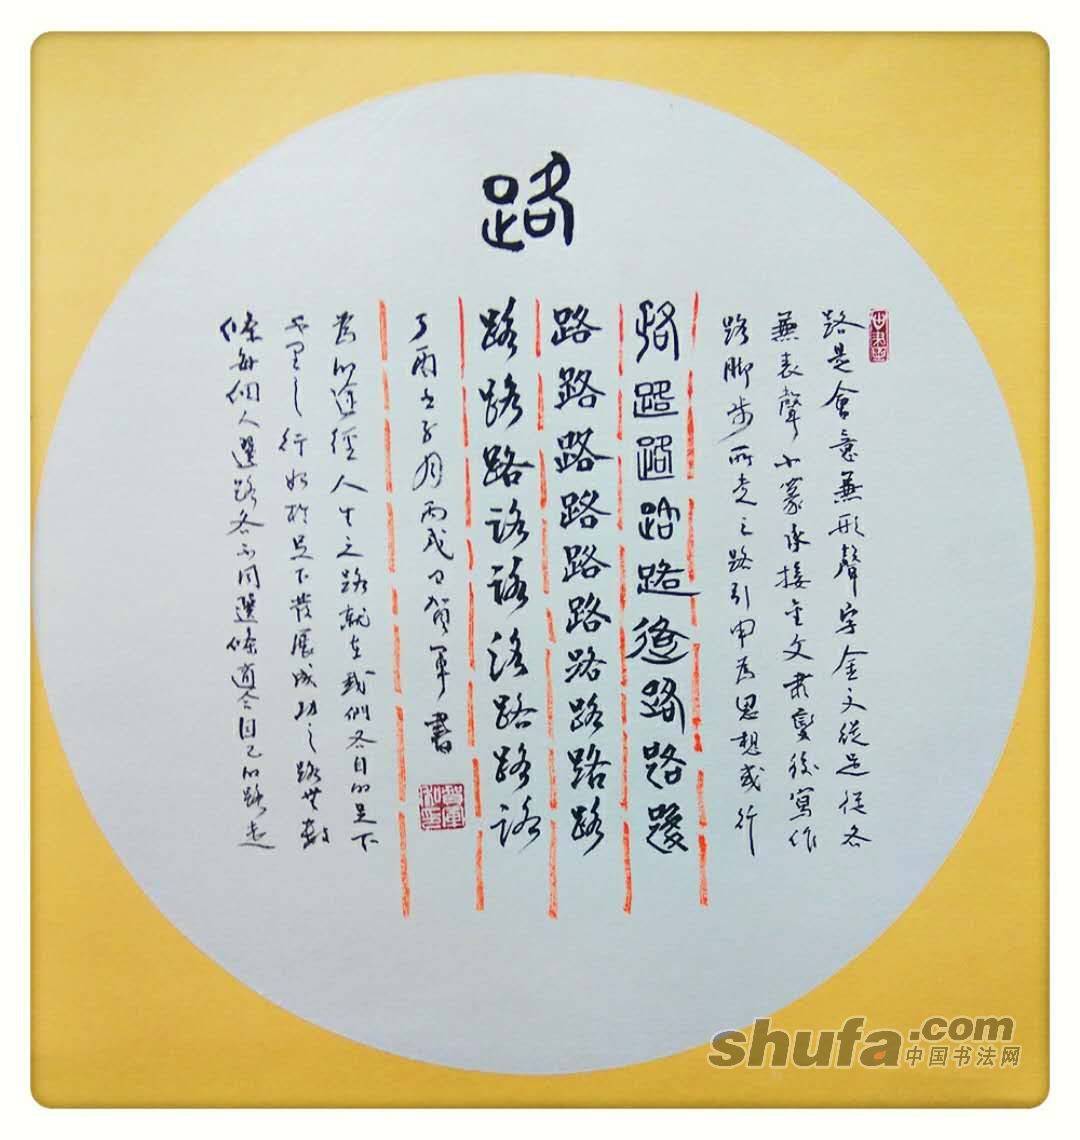 路
路是會意兼形聲字金文從足從各
兼表聲小篆承接金文隸變後寫作
路脚步所走之路引申為思想或行
路路路路路路路路路
路路路路路路路路路
路路路路路路路路路
丁酉壬子月丙戌日賀軍書
為的途徑人生之路就在我們各自的足下
千里之行始於足下發展成功之路無數
條每個人選路各不同選條適合自己的路走
shufa.com
中国书法网